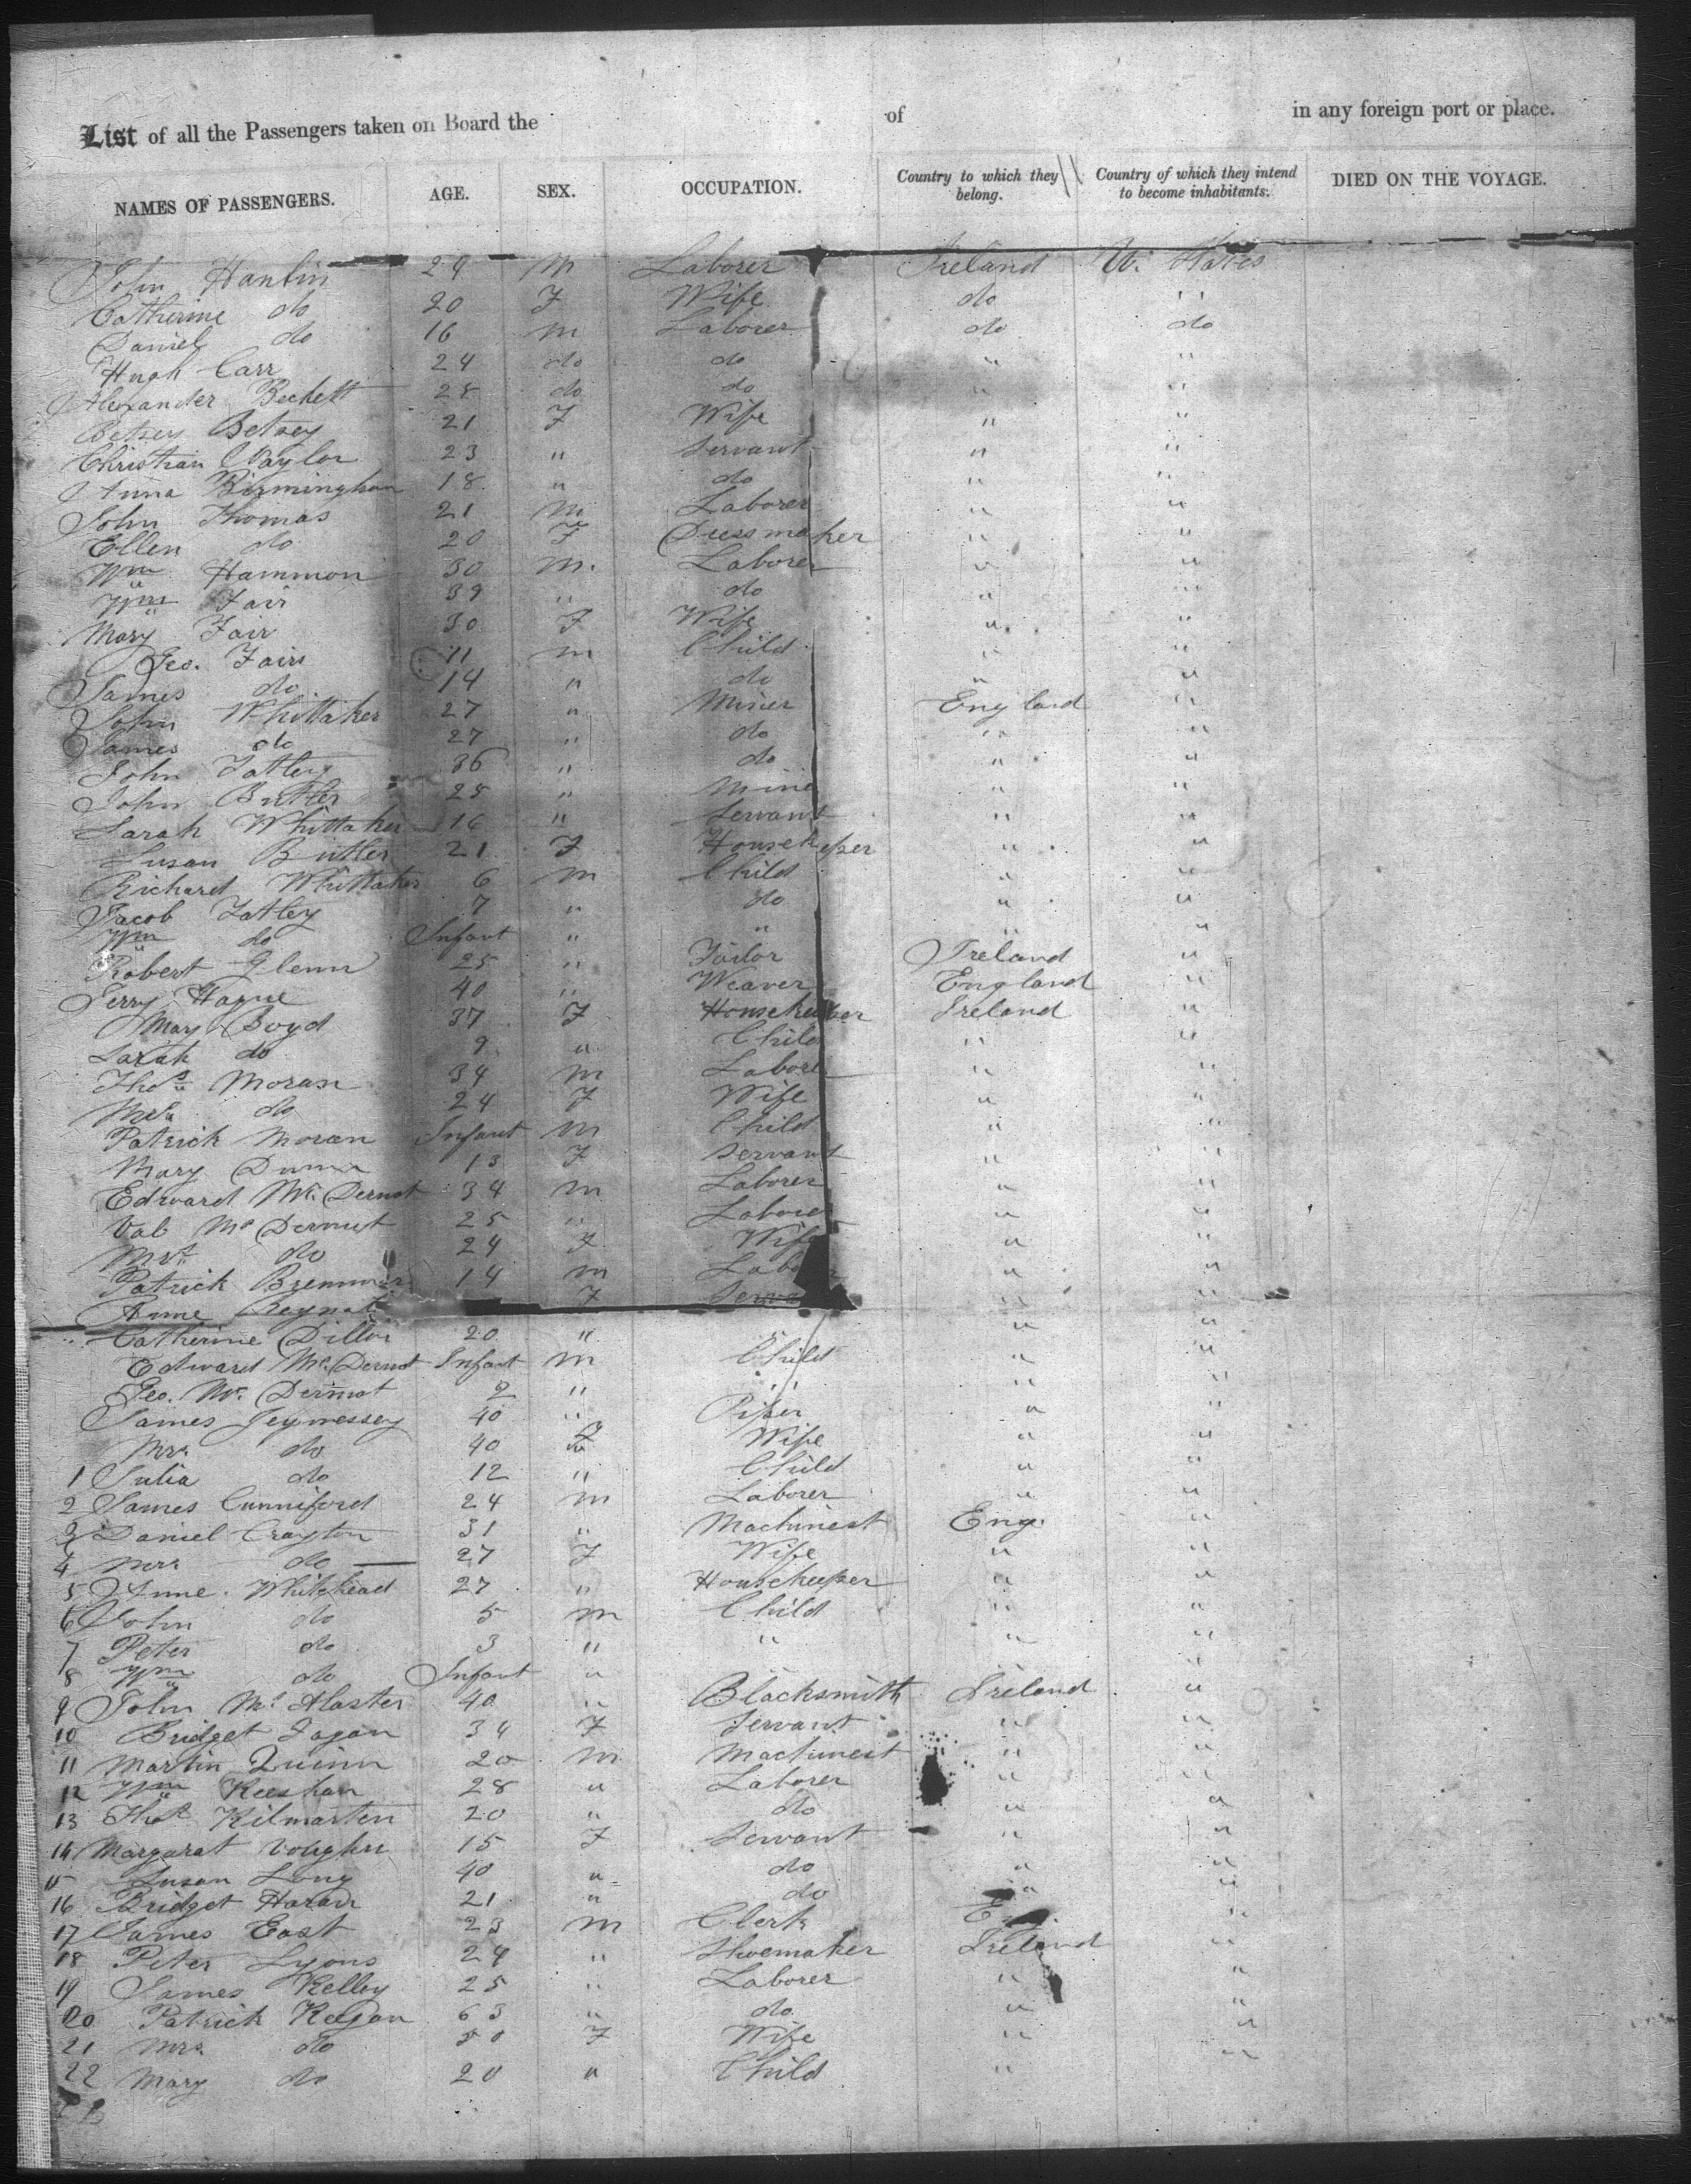 List of all the Passengers taken on Board the of in any foreign port or place.
NAMES OF PASSENGERS. AGE. SEX. OCCUPATION. Country to which they belong. Country of which they intend to become inhabitants. DIED ON THE VOYAGE.
John Hanlin 24 M Laborer Ireland U. States
Catherine do 20 F Wife do "
Daniel do 16 M Laborer do do
Hugh Carr 24 do do " "
Alexander Beckett 25 do do " "
Betsey Betsey 21 F Wife " "
Christian Waylor 23 " Servant " "
Anna Birmingham 18 " do " "
John Thomas 21 M Laborer " "
Ellen do 20 F Dressmaker " "
Wm Hammon 30 M. Laborer " "
Wm Fair 39 " do " "
Mary Fair 30 F Wife " "
Geo. Fair 11 M Child " "
James do 14 " do " "
John Whittaker 27 " Miner England "
James do 27 " do " "
John Tatley 36 " do " "
John Butler 25 " Mine " "
Sarah Whittaker 16 " Servant " "
Susan Butler 21 F Housekeper " "
Richard Whittaker 6 M Child " "
Jacob Tatley 7 " do " "
Wm do Infant " " " "
Robert Glenn 25 " Tailor Ireland "
Jerry Hague 40 " Weaver England "
Mary Boyd 37 F Housekeeper Ireland "
Sarah do 9 " Child " "
Thos Moran 34 M Labore " "
Mrs do 24 F Wife " "
Patrick Moran Infant M Child " "
Mary Dunn 13 F Servant " "
Edward Mc Dermot 34 M Laborer " "
Val Mc Dermut 25 " Laborer " "
Mrs do 24 F Wife " "
Patrick Bremmar 14 M Labo " "
Anne F Serva " "
Catherine Dillon 20 " " " "
Edward Mc. Dermot Infant M Child " "
Geo. Mc. Dermot 2 " " " "
James Jeynnessey 40 " Piper " "
Mrs do 40 F Wife " "
1 Julia do 12 " Child " "
2 James Cunniford 24 M Laborer " "
3 Daniel Crayton 31 " Machinest Eng. "
4 Mrs do 27 F Wife " "
5 Anne Whitehead 27 " Housekeeper " "
6 John do 5 M Child " "
7 Peter do 3 " " " "
8 Wm do Infant " " " "
9 John Mc Alaster 40 " Blacksmith Ireland "
10 Bridget Fagan 34 F Servant " "
11 Martin Quinn 20 M Machinest " "
12 Wm Keeshan 28 " Laborer " "
13 Thos Kilmarten 20 " do " "
14 Margarat Voughn 15 F Servant " "
15 Susan Long 40 " do " "
16 Bridget Haran 21 " do " "
17 James East 23 M Clerk Eng. "
18 Peter Lyons 24 " Shoemaker Ireland "
19 James Kelley 25 " Laborer " "
20 Patrick Keegan 63 " do " "
21 Mrs do 50 F Wife " "
22 Mary do 20 " Child " "